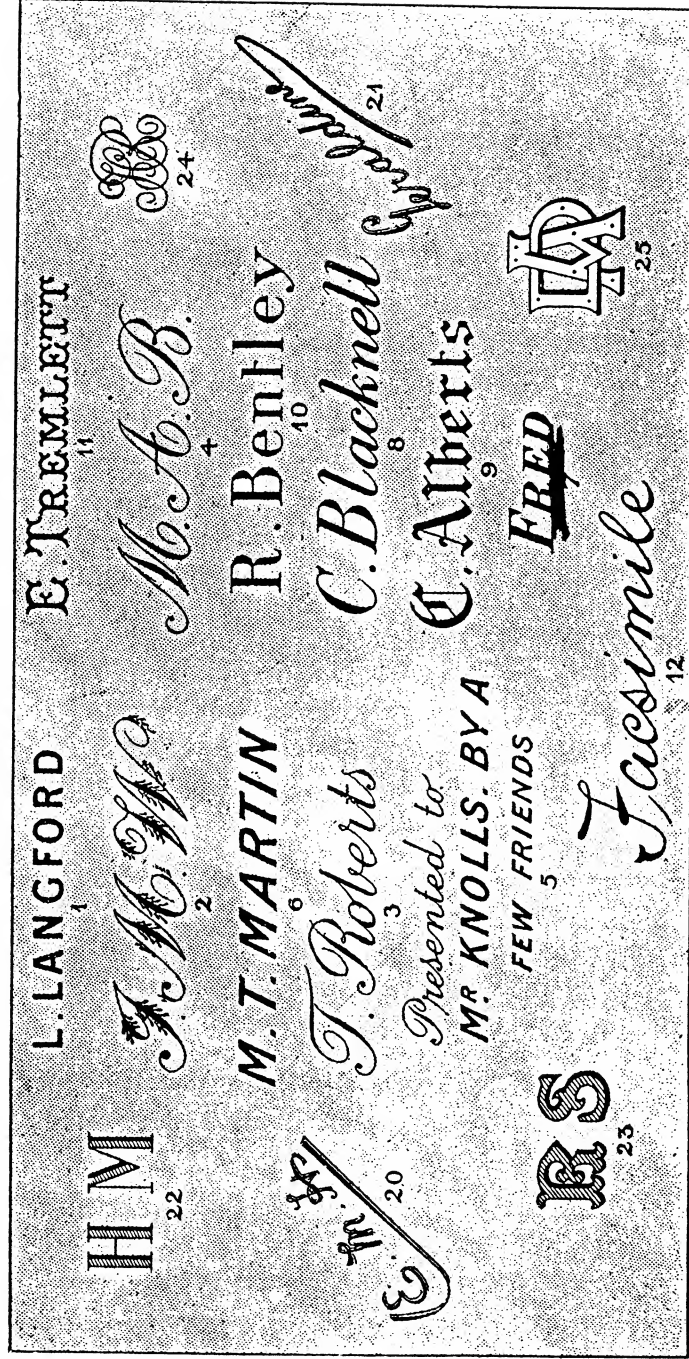 H M
22
20
R S
23
L. LANGFORD
1
2
M. T. MARTIN
6
T. Roberts
3
Presented to
MR KNOLLS. BY A
FEW FRIENDS
5
Facsimile
12
E. TREMLETT
11
M. A. B.
4
R. Bentley
10
C. Blacknell
8
C. Alberts
9
FRED
24
Geraldine
21
25